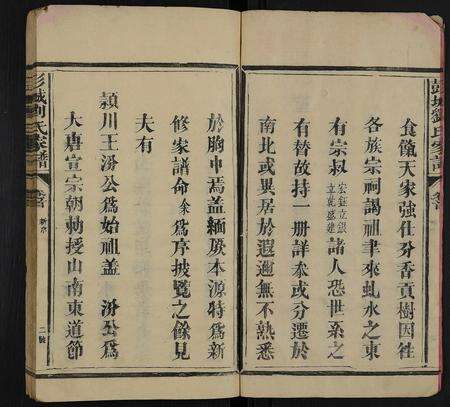 彭城劉氏家譜
卷首
食儴天家強仕分香貢樹因徃
各族宗祠謁祖聿來虬水之東
有宗叔宏鈺立銀立苑盛建諸人恐世系之
有替故持一册詳叅或分遷於
南北或異居於遐邇無不熟悉
於胸中焉蓋緬厥本源特爲新
修家譜命余爲序披覽之餘見
夫有
潁川王汾公爲始祖蓋汾公爲
大唐宣宗朝勅授山南東道節
彭城劉氏家譜
卷首
新序
二號